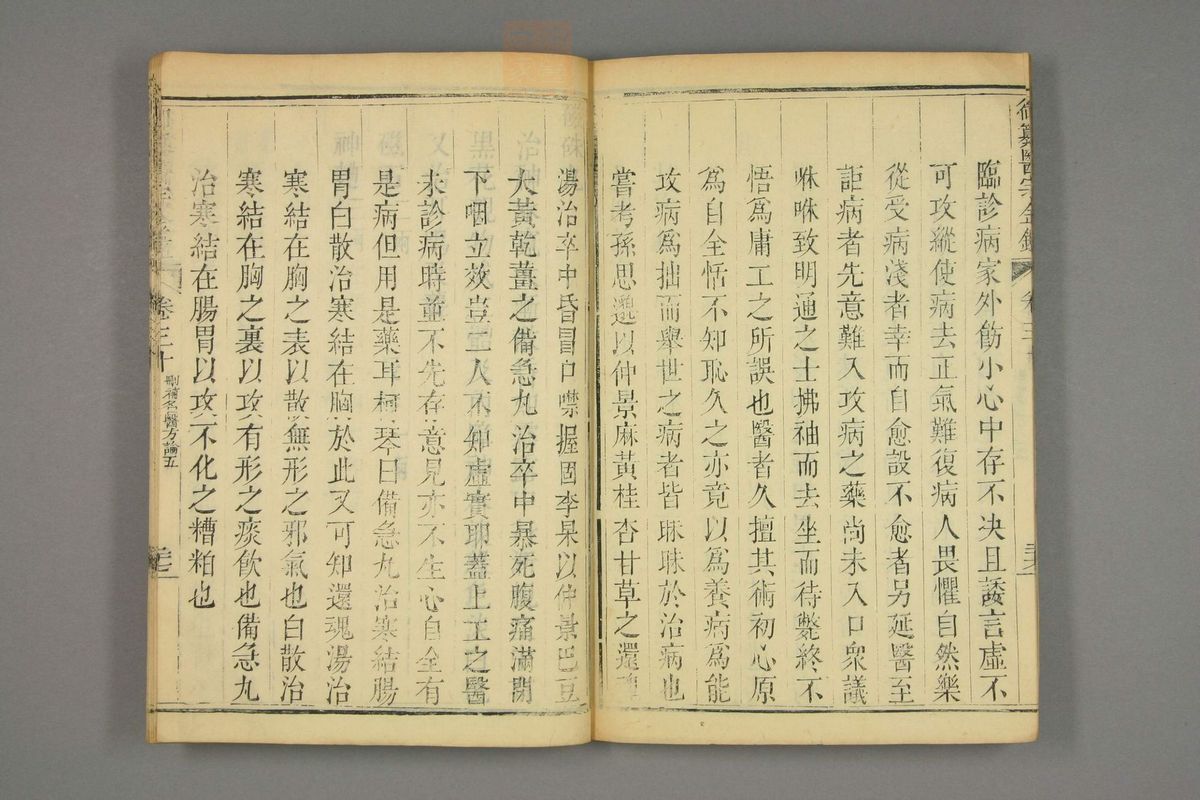 御纂醫宗金鑑
卷三十
臨診病家外飭小心中存不决且諉言虛不
可攻縱使病去正氣難復病人畏懼自然樂
從受病淺者幸而自愈設不愈者另延醫至
詎病者先意難入攻病之藥尚未入口衆議
咻咻致明通之士拂袖而去坐而待斃終不
悟爲庸工之所誤也醫者久擅其術初心原
爲自全恬不知恥久之亦竟以爲養病爲能
攻病爲拙而舉世之病者皆昧昧於治病也
嘗考孫思邈以仲景麻黃桂杏甘草之還魂
湯治卒中昏冒口噤握固李杲以仲景巴豆
大黃乾薑之備急丸治卒中暴死腹痛滿閉
下咽立效豈二人不知虛實耶蓋上工之醫
未診病時並不先存意見亦不生心自全有
是病但用是藥耳柯琴曰備急丸治寒結腸
胃白散治寒結在胸於此又可知還魂湯治
寒結在胸之表以散無形之邪氣也白散治
寒結在胸之裏以攻有形之痰飲也備急丸
治寒結在腸胃以攻不化之糟粕也
卷三十
刪補名醫方論五